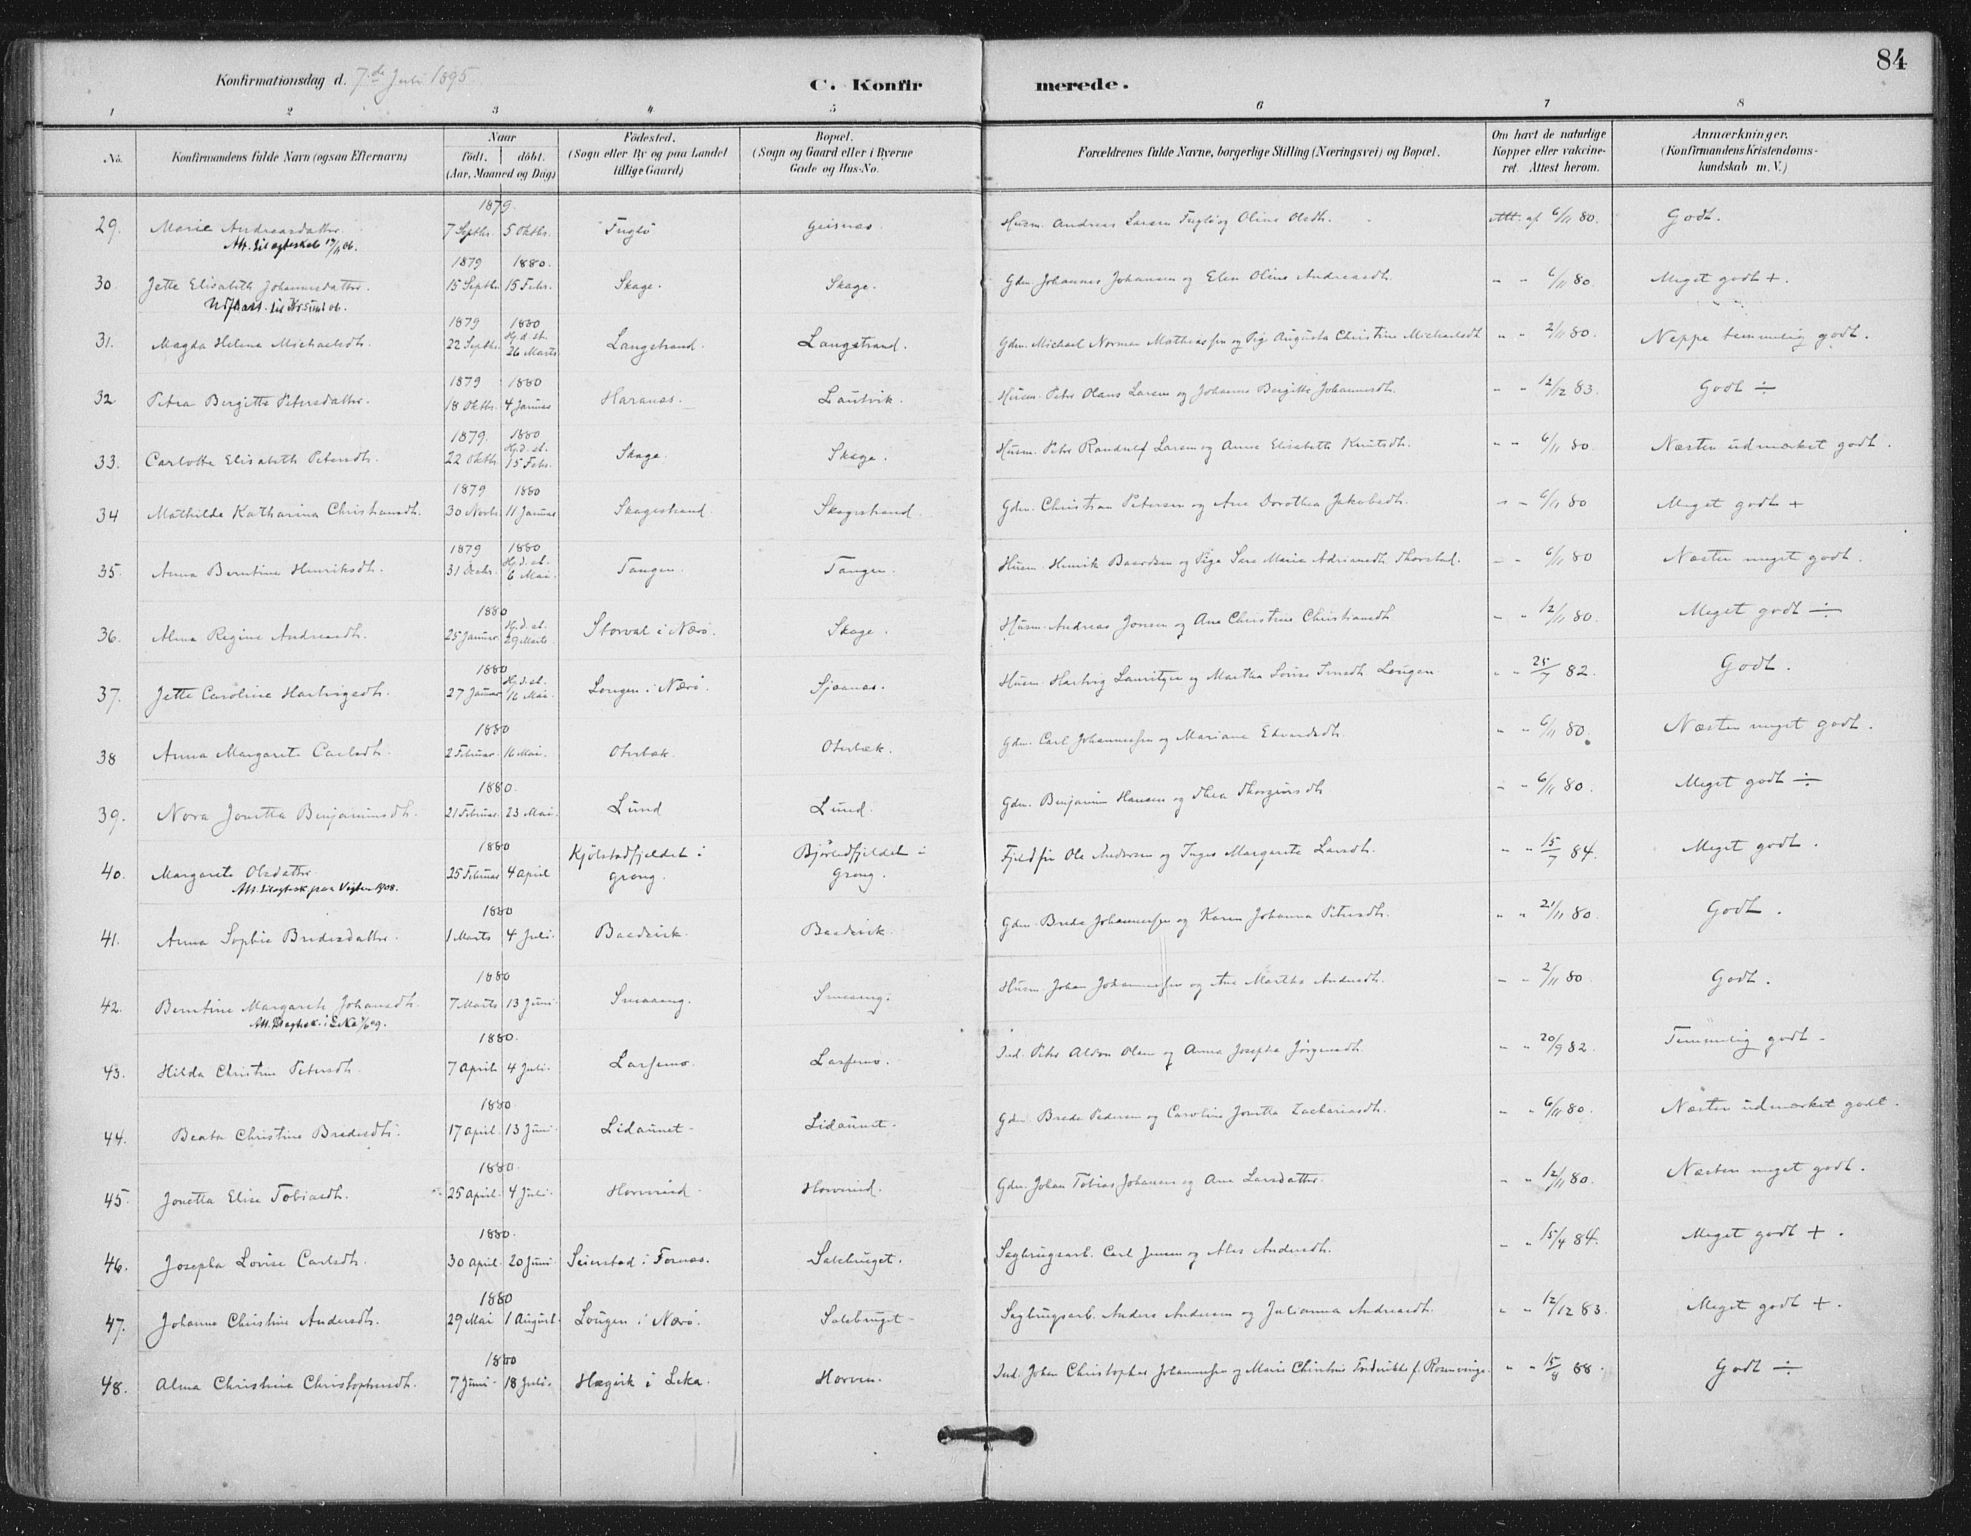 84
Konfirmationsdag d. 7de Juli 1895.
C. Konfirmerede.
1 2 3 4 5 6 7 8
No. Konfirmandens fulde Navn (ogsaa Efternavn) Naar födt. döbt. (Aar, Maaned og Dag) Födested. (Sogn eller By og paa Landet tillige Gaard) Bopæl. (Sogn og Gaard eller i Byerne Gade og Hus-No. Forældrenes fulde Navne, borgerlige Stilling (Næringsvei) og Bopæl. Om havt de naturlige Kopper eller vakcineret. Attest herom. Anmærkninger. (Konfirmandens Kristendomskundskab m. V.)
1879.
29. Marie Andreasdatter. 7 Septbr. 5 Oktbr. Fuglö Geisnæs. Husm. Andreas Larsen Fuglö og Oline Olsdtr. Att. af 6/11 80. Godt.
Att. til ægteskab
1879 1880.
30. Jette Elisabeth Johannesdatter. 15 Septbr. 15 Febr. Skage. Skage. Gdm. Johannes Johansen og Elen Oline Andreasdtr. " " 6/11 80. Meget godt +.
1879 1880
31. Magda Helena Michaelsdtr. 22 Septbr. Hj.d. st. 26 Marts Langstrand. Langstrand. Gdm. Michael Norman Mathiassen og Pige Augusta Christine Michaelsdtr " " 2/11 80. Neppe temmelig godt.
1879 1880
32 Petra Bergitte Petersdatter. 18 Oktbr. 4 Januar Haranes. Lautvik. Husm. Peter Olaus Larsen og Johanna Bergitte Johannesdtr. " " 12/12 83. Godt ÷
1879. 1880
33. Carlotte Elisabeth Petersdtr. 22 Oktbr. Hj.d. st. 15 Febr. Skage. Skage. Husm. Peter Randulf Larsen og Anne Elisabeth Knutsdtr. " " 6/11 80. Næsten udmærket godt.
1879 1880
34 Mathilde Katharina Christiansdtr. 30 Novbr. 11 Januar Skagestrand Skagestrand. Gdm. Christian Petersen og Ane Dorothea Jakobsdtr. " " 6/11 80 Meget godt +
1879 1880
35. Anna Berntine Henriksdtr. 31 Decbr. Hj.d. st. 6 Mai. Tangen. Tangen. Husm. Henrik Baardsen og Pige Sara Maria Adriansdtr Thorstad. " " 6/11 80 Næsten meget godt.
1880
36. Alma Regine Andreasdtr. 25 Januar Hj.d. st. 29 Marts Storval i Nærö. Skage. Husm. Andreas Jonsen og Ane Christine Christiansdtr " " 12/11 80. Meget godt ÷
1880
37. Jette Caroline Hartvigsdtr. 27 Januar Hj.d. st. 16 Mai. Longen i Nærö. Sjoanæs. Husm. Hartvig Lauritzen og Martha Lovise Longen " " 25/7 82. Godt.
1880
38 Anna Margarete Carlsdtr. 2 Februar 16 Mai. Oterbæk. Oterbæk. Gdm. Carl Johannessen og Mariane Edvardsdtr. " " 6/11 80. Næsten meget godt.
1880.
39. Nora Jonetta Benjaminsdtr. 21 Februar 23 Mai. Lund Lund. Gdm. Benjamin Hansen og Thea Thorgeirsdtr. " " 6/11 80. Meget godt ÷
1880
40. Margarete Olsdatter. 25 Februar 4 April Kjölstadfjeldet i Grong. Bjørledfjeldet i Grong. Ole Andersen og Inger Margarete Larsdtr. " " 15/7 84. Meget godt.
Att. til ægtesk. paa Vigten 1908.
1880
41. Anna Sophie Bredesdatter. 1 Marts 4 Juli. Baadvik. Baadvik. Gdm. Brede Johannessen og Karen Johanna Petersdtr. " " 21/11 80. Godt.
1880
42. Berntine Margarete Johansdtr. 7 Marts 13 Juni. Smaaeng. Smaaeng. Husm. Johan Johannessen og Ane Martha Andersdtr. " " 2/11 80. Godt.
1880.
43. Hilda Christine Petersdtr. 7 April 4 Juli. Larsmo. Larsmo. Ind. Peter Aldon Olsen og Anna Josepha Jörgensdtr. " " 20/9 82. Temmelig godt.
1880.
44. Beata Christine Bredesdtr. 17 April. 13 Juni Lidaunet. Lidaunet. Gdm. Brede Pedersen og Caroline Jonetta Zachariasdtr. " " 6/11 80. Næsten udmærket godt.
1880.
45. Jonetta Elise Tobiasdtr. 25 April. 4 Juli. Horvereid. Horvereid. Gdm. Johan Tobias Johansen og Ane Larsdatter. " " 12/11 80. Næsten meget godt.
1880.
46. Josepha Lovise Carlsdtr. 30 April. 20 Juni Seierstad i Fosnæs. Salsbruget. Sagbrugsarb. Carl Jensen og Andersdtr. " " 15/4 84. Meget godt +.
1880
47. Johanna Christine Andersdtr. 29 Mai 1 August. Longen i Nærö. Salsbruget. Sagbrugsarb. Anders Andersen og Julianna Andreasdtr. " " 12/12 83. Meget godt +.
1880
48. Alma Christine Christophersdtr. 7 Juni. 18 Juli. Hægvik i Leka. Horven. Ind. Johan Christopher Johannessen og Marie Christine Frederikke f. Rosenvinge. " " 15/8 88. Godt ÷